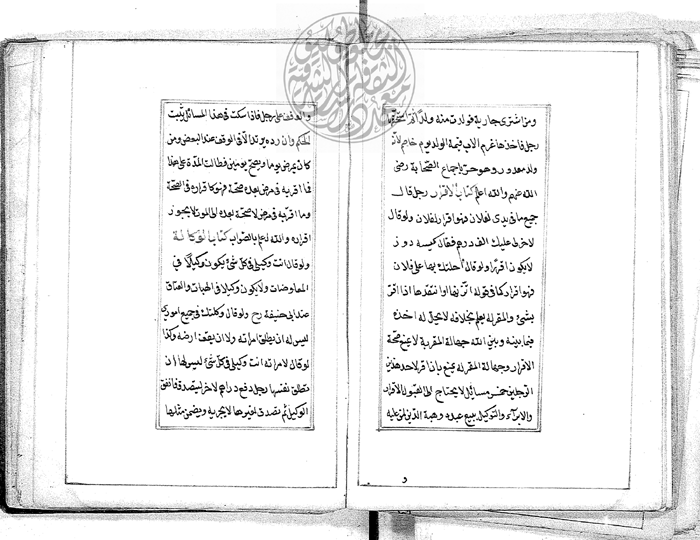 ومن اشترى جارية فولدت منه ولدا ثم استحقها
رجل فاخذها غرم الاب قيمة الولد يوم خاصم لانه
ولد مغرور وهو حر باجماع الصحابة رضى
الله عنهم والله اعلم كتاب الاقرار رجل قال
جميع ما في يدى لفلان فهو اقرار لفلان ولو قال
لاخر لى عليك الف درهم فقال كيسه دوز
لا يكون اقرارا ولو قال احلتك بها على فلان
فهو اقرار كما في قوله اتزنها او انتقدها اذا اقر
بشئ والمقر له يعلم بخلافه لا يحل له اخذه
فيما بينه وبين الله جهالة المقر به لا يمنع صحة
الاقرار وجهالة المقر له يمنع بان اقر لاحد هذين
الرجلين خمس مسائل لا يحتاج الى القبول الاقرار
والابراء والتوكيل ببيع عبده وهبة الدين لمن عليه
و
والوقف على رجل فاذا سكت في هذا المسائل يثبت
الحكم وان رده يرتد الا في الوقف عند البعض ومن
كان يمرض يوما ويصح يومين فطالت المدة على هذا
فما اقر به في مرض بعده صحة فهو كاقراره في الصحة
وما اقر به في مرض لا صحة بعده الى الموت لا يجوز
اقراره والله اعلم بالصواب كتاب الوكالة
ولو قال انت وكيلى في كل شئ يكون وكيلا في
المعاوضات ولا يكون وكيلا في الهبات والعتاق
عند ابى حنيفة رح ولو قال وكلتك في جميع امورى
ليس له ان يطلق امراته ولا ان يقف ارضه وكذا
لو قال لامراته انت وكيلى في كل شئ ليس لها ان
تطلق نفسها رجل دفع دراهم لاخر ليتصدق فانفق
الوكيل ثم تصدق بغيرها لا يجزيه ويضمن مثلها